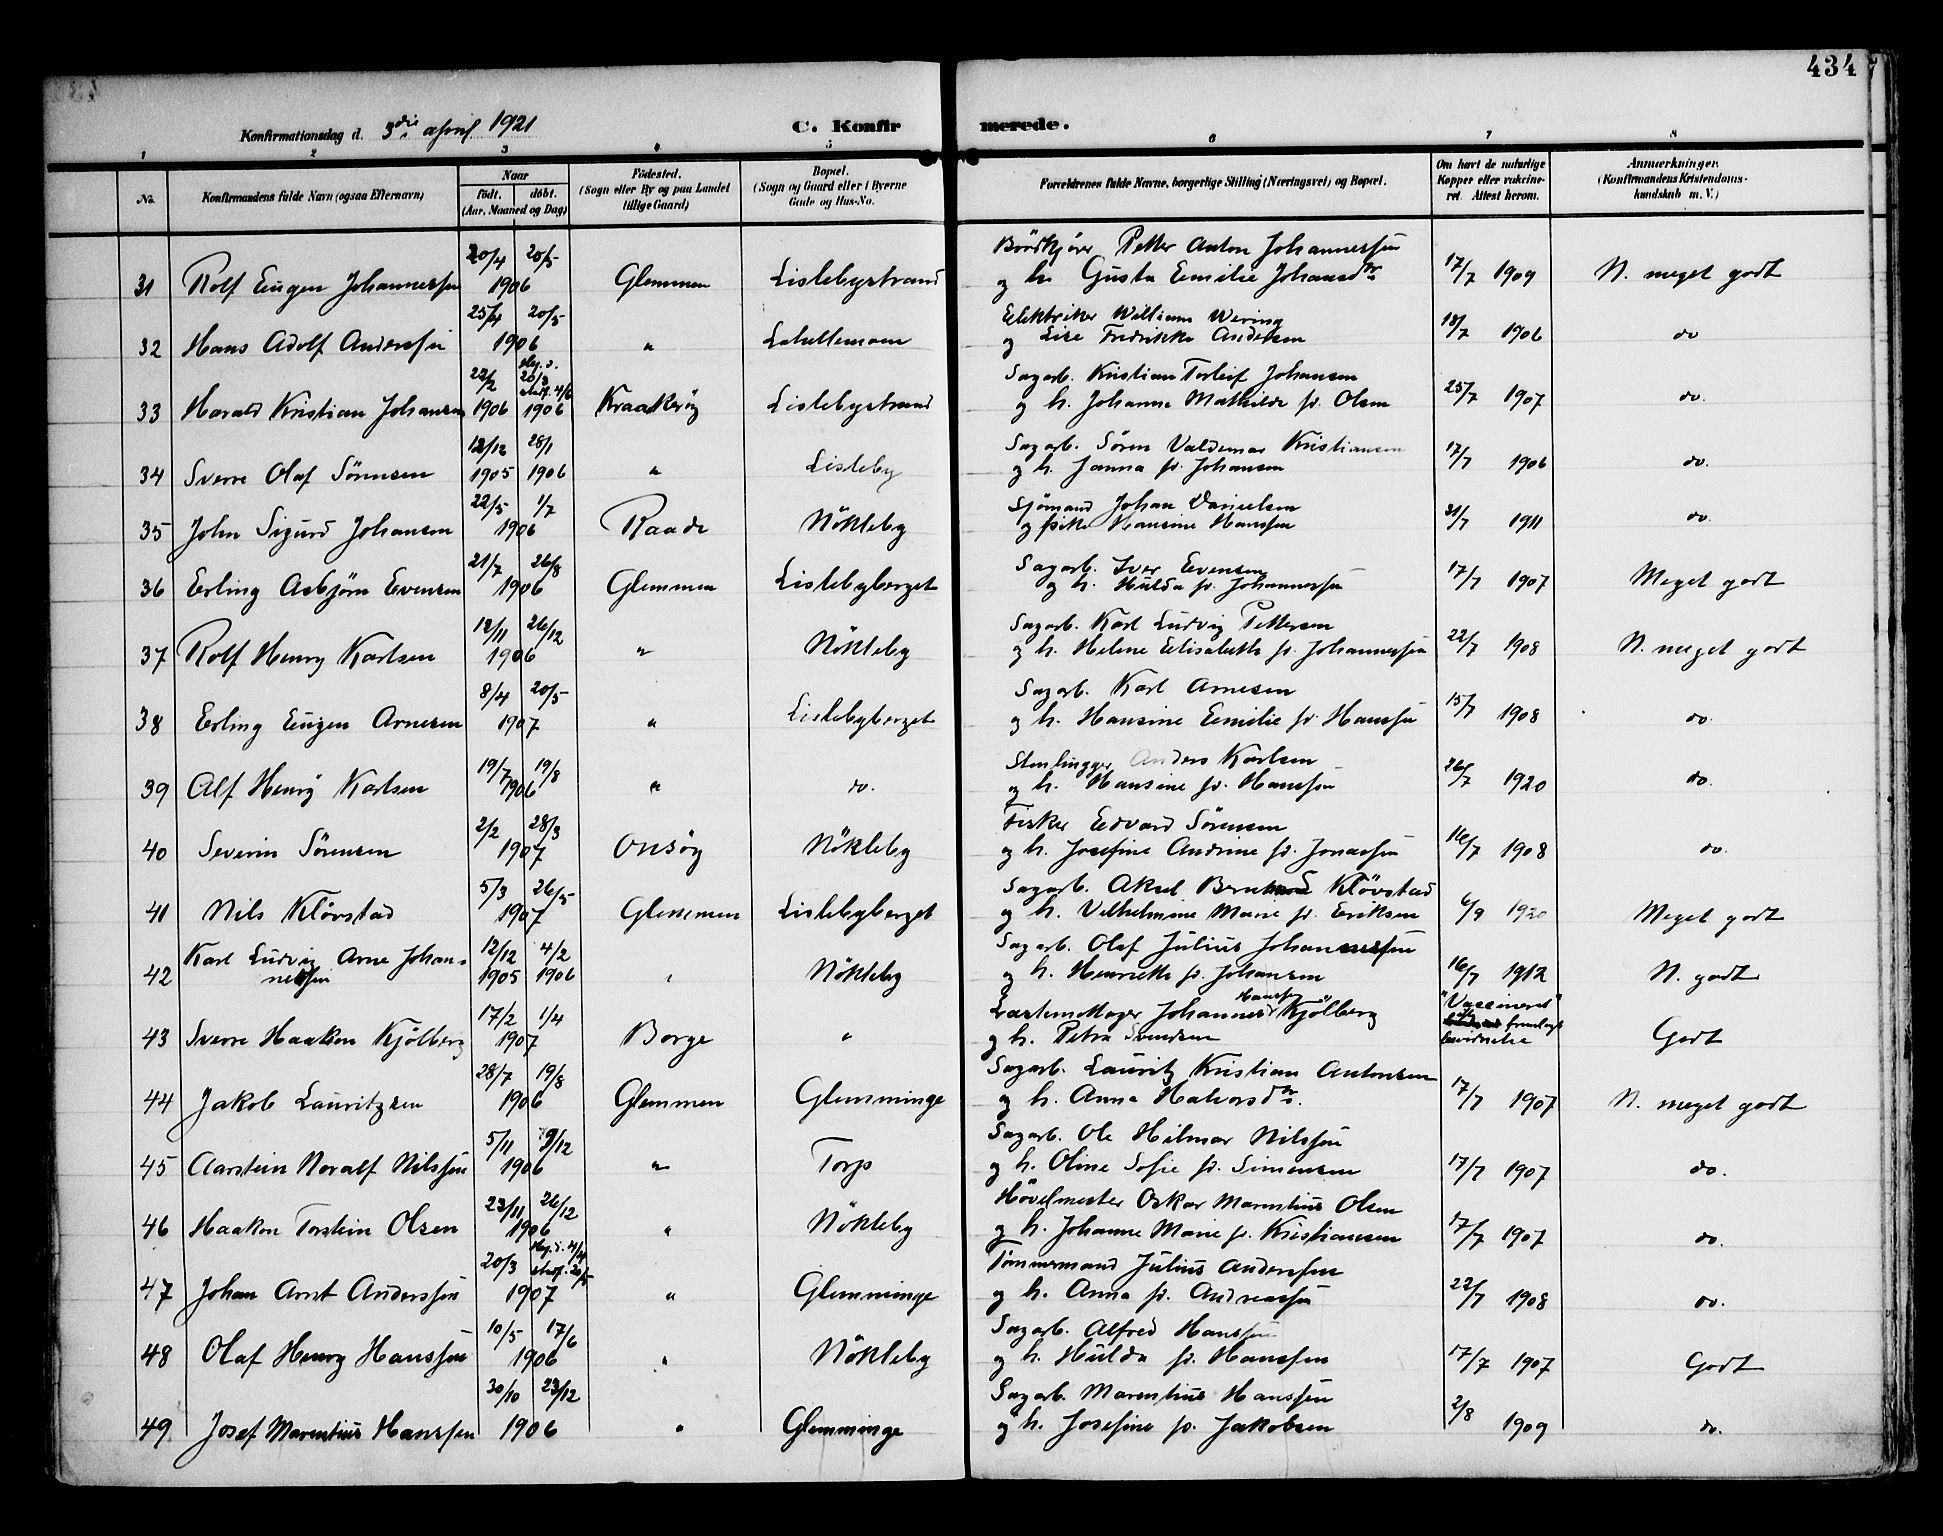 434
Konfirmationsdag d. 3die april 1921
C. Konfirmerede.
1 2 3 4 5 6 7 8
No. Konfirmandens fulde Navn (ogsaa Efternavn) Naar født. døbt. (Aar, Maaned og Dag) Fødested. (Sogn eller By og paa Landet tillige Gaard) Bopæl. (Sogn og Gaard eller i Byerne Gade og Hus-No. Forældrenes fulde Navne, borgerlige Stilling (Næringsvei) og Bopæl. Om havt de naturlige Kopper eller vakcineret. Attest herom. Anmærkninger. (Konfirmandens Kristendomskundskab m. V.)
31 Rolf Eugen Johannessen 20/4 20/5 1906 Glemmen Lislebystrand Brödkjörer Petter Anton Johannessen
og h. Gusta Emilie Johansdtr 17/7 1909 N. meget godt
32 Hans Adolf Anderssen 25/4 20/5 1906 " Elektriker William Wering
og Lise Fredrikke Andersen 18/7 1906 do
33 Harald Kristian Johansen 22/2 1906 hj. d. 20/3 stadf. 4/6 1906 Kraakeröy Lislebystrand Sagarb. Kristian Torleif Johansen
og h. Johanne Mathilde f. Olsen 25/7 1907 do.
34 Sverre Olaf Sörensen 12/12 1905 28/1 1906 " Lisleby Sagarb. Sören Valdemar Kristiansen
og h. Janna f. Johansen 17/7 1906 do.
35 John Sigurd Johansen 22/5 1/7 1906 Raade Nökleby Sjömand Johan Danielsen
og pike Hansine Hanssen 31/7 1911 do.
36 Erling Asbjörn Evensen 21/7 26/8 1906 Glemmen Lislebyberget Sagarb. Iver Evensen
og h. Hulda f. Johannessen 17/7 1907 Meget godt
37 Rolf Henry Karlsen 12/11 26/12 1906 " Nökleby Sagarb. Karl Ludvig Pettersen
og h. Helene Elisabeth f. Johannessen 22/7 1908 N. meget godt
38 Erling Eugen Arnesen 8/4 20/5 1907 " Lislebyberget Sagarb. Karl Arnesen
og h. Hansine Emilie f. Hanssen 15/7 1908 do.
39 Alf Henry Karlsen 19/7 19/8 1906 " do. Stenhugger Anders Karlsen
og h. Hansine f. Hanssen 26/7 1920 do.
40 Severin Sörensen 2/2 28/3 1907 Onsöy Nökleby Fisker Edvard Sörensen
og h. Josefine Andrine f. Jonassen 16/7 1908 do.
41 Nils Klövstad 5/3 26/5 1907 Glemmen Lislebyberget Sagarb. Aksel Klövstad
og h. Vilhelmine Marie f. Eriksen 6/9 1920 Meget godt
42 Karl Ludvig Arne Johannessen 12/12 1905 4/2 1906 " Nökleby Sagarb. Olaf Julius Johannessen
og h. Henriette f. Johansen 16/7 1912 N. godt
43 Sverre Haakon Kjölberg 17/2 1/4 1907 Borge " Lastemottager Johannes Hanssen Kjölberg
og h. Petra Svendsen "Vaccineret" fremlagt Godt
44 Jakob Lauritzsen 28/7 19/8 1906 Glemmen Glemminge Sagarb. Lauritz Kristian Antonsen
og h. Anna Halvorsdtr. 17/7 1907 N. meget godt
45 Aarstein Noralf Nilssen 5/11 9/12 1906 " Torp Sagarb. Ole Hilmar Nilssen
og h. Oline Sofie f. Simensen 17/7 1907 do.
46 Haakon Torstein Olsen 23/11 26/12 1906 " Nökleby Hövelmester Oskar Marentius Olsen
og h. Johanne Marie f. Kristiansen 17/7 1907 do.
47 Johan Arnt Anderssen 20/3 hj. d. 4/4 stadf. 20/5 1907 " Glemminge Tömmermand Julius Anderssen
og h. Anna f. Andreassen 22/7 1908 do.
48 Olaf Henry Hanssen 10/5 17/6 1906 " Nökleby Sagarb. Alfred Hanssen
og h. Hulda f. Hanssen 17/7 1907 Godt
49 Josef Marentius Hanssen 30/10 23/12 1906 " Glemminge Sagarb. Marentius Hanssen
og h. Josefine f. Jakobsen 2/8 1909 do.